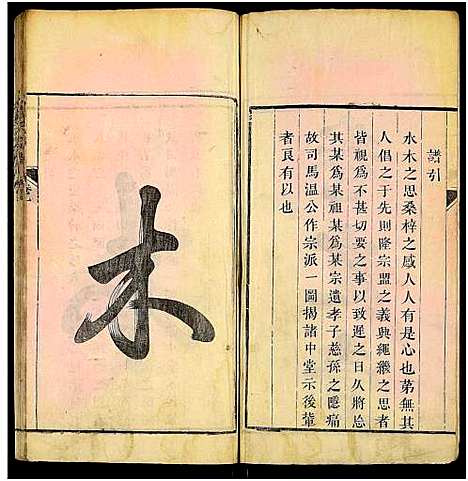 譜引
水木之思桑梓之感人人有是心也第無其
人倡之于先則隆宗盟之義與繩繼之思者
皆視為不甚切要之事以致遲之日久將忘
其某為某祖某為某宗遺孝子慈孫之隱痛
故司馬溫公作宗派一圖揭諸中堂示後輩
者良有以也
木